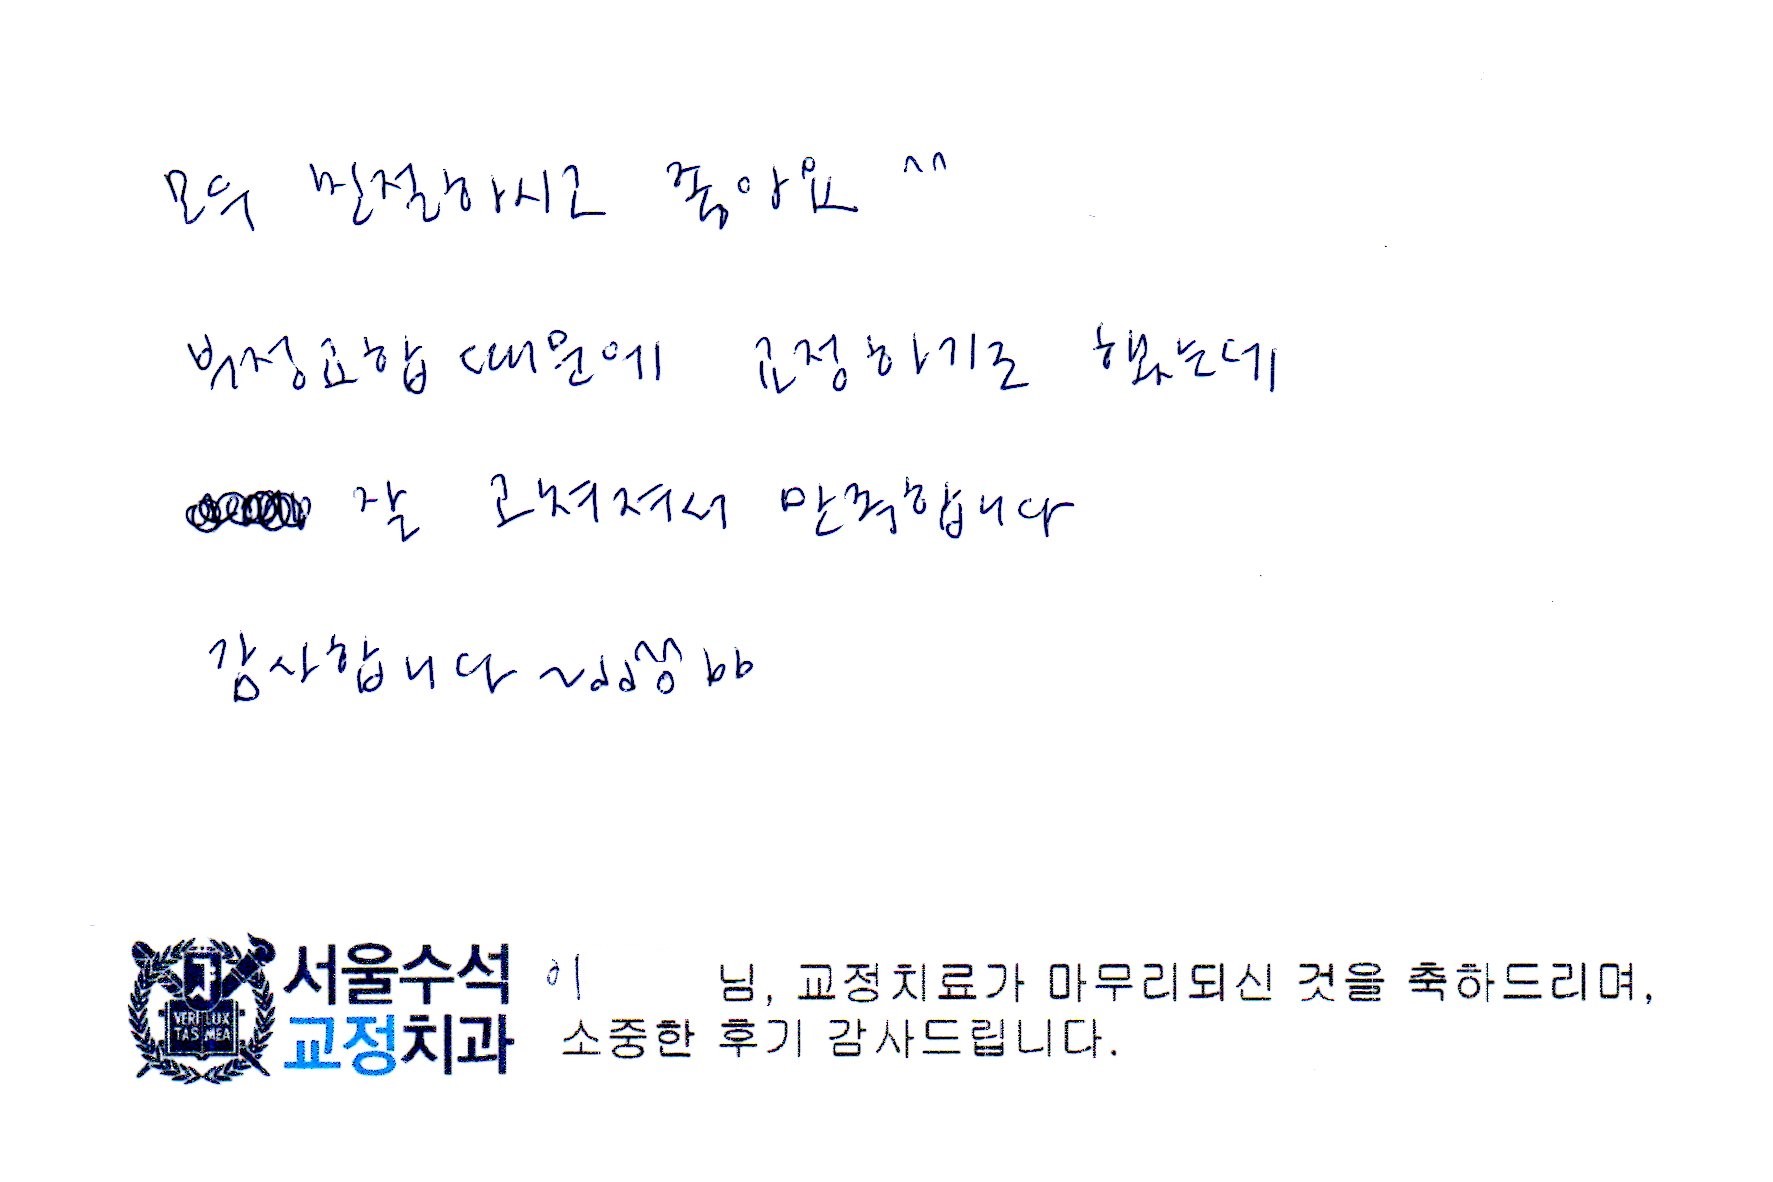 모두 친절하시고 좋아요 ^^
부정교합 때문에 교정하기로 했는데
잘 고쳐져서 만족합니다
감사합니다 ~dd bb
서울수석
교정치과
VERI LUX
TAS MEA
이 님, 교정치료가 마무리되신 것을 축하드리며,
소중한 후기 감사드립니다.